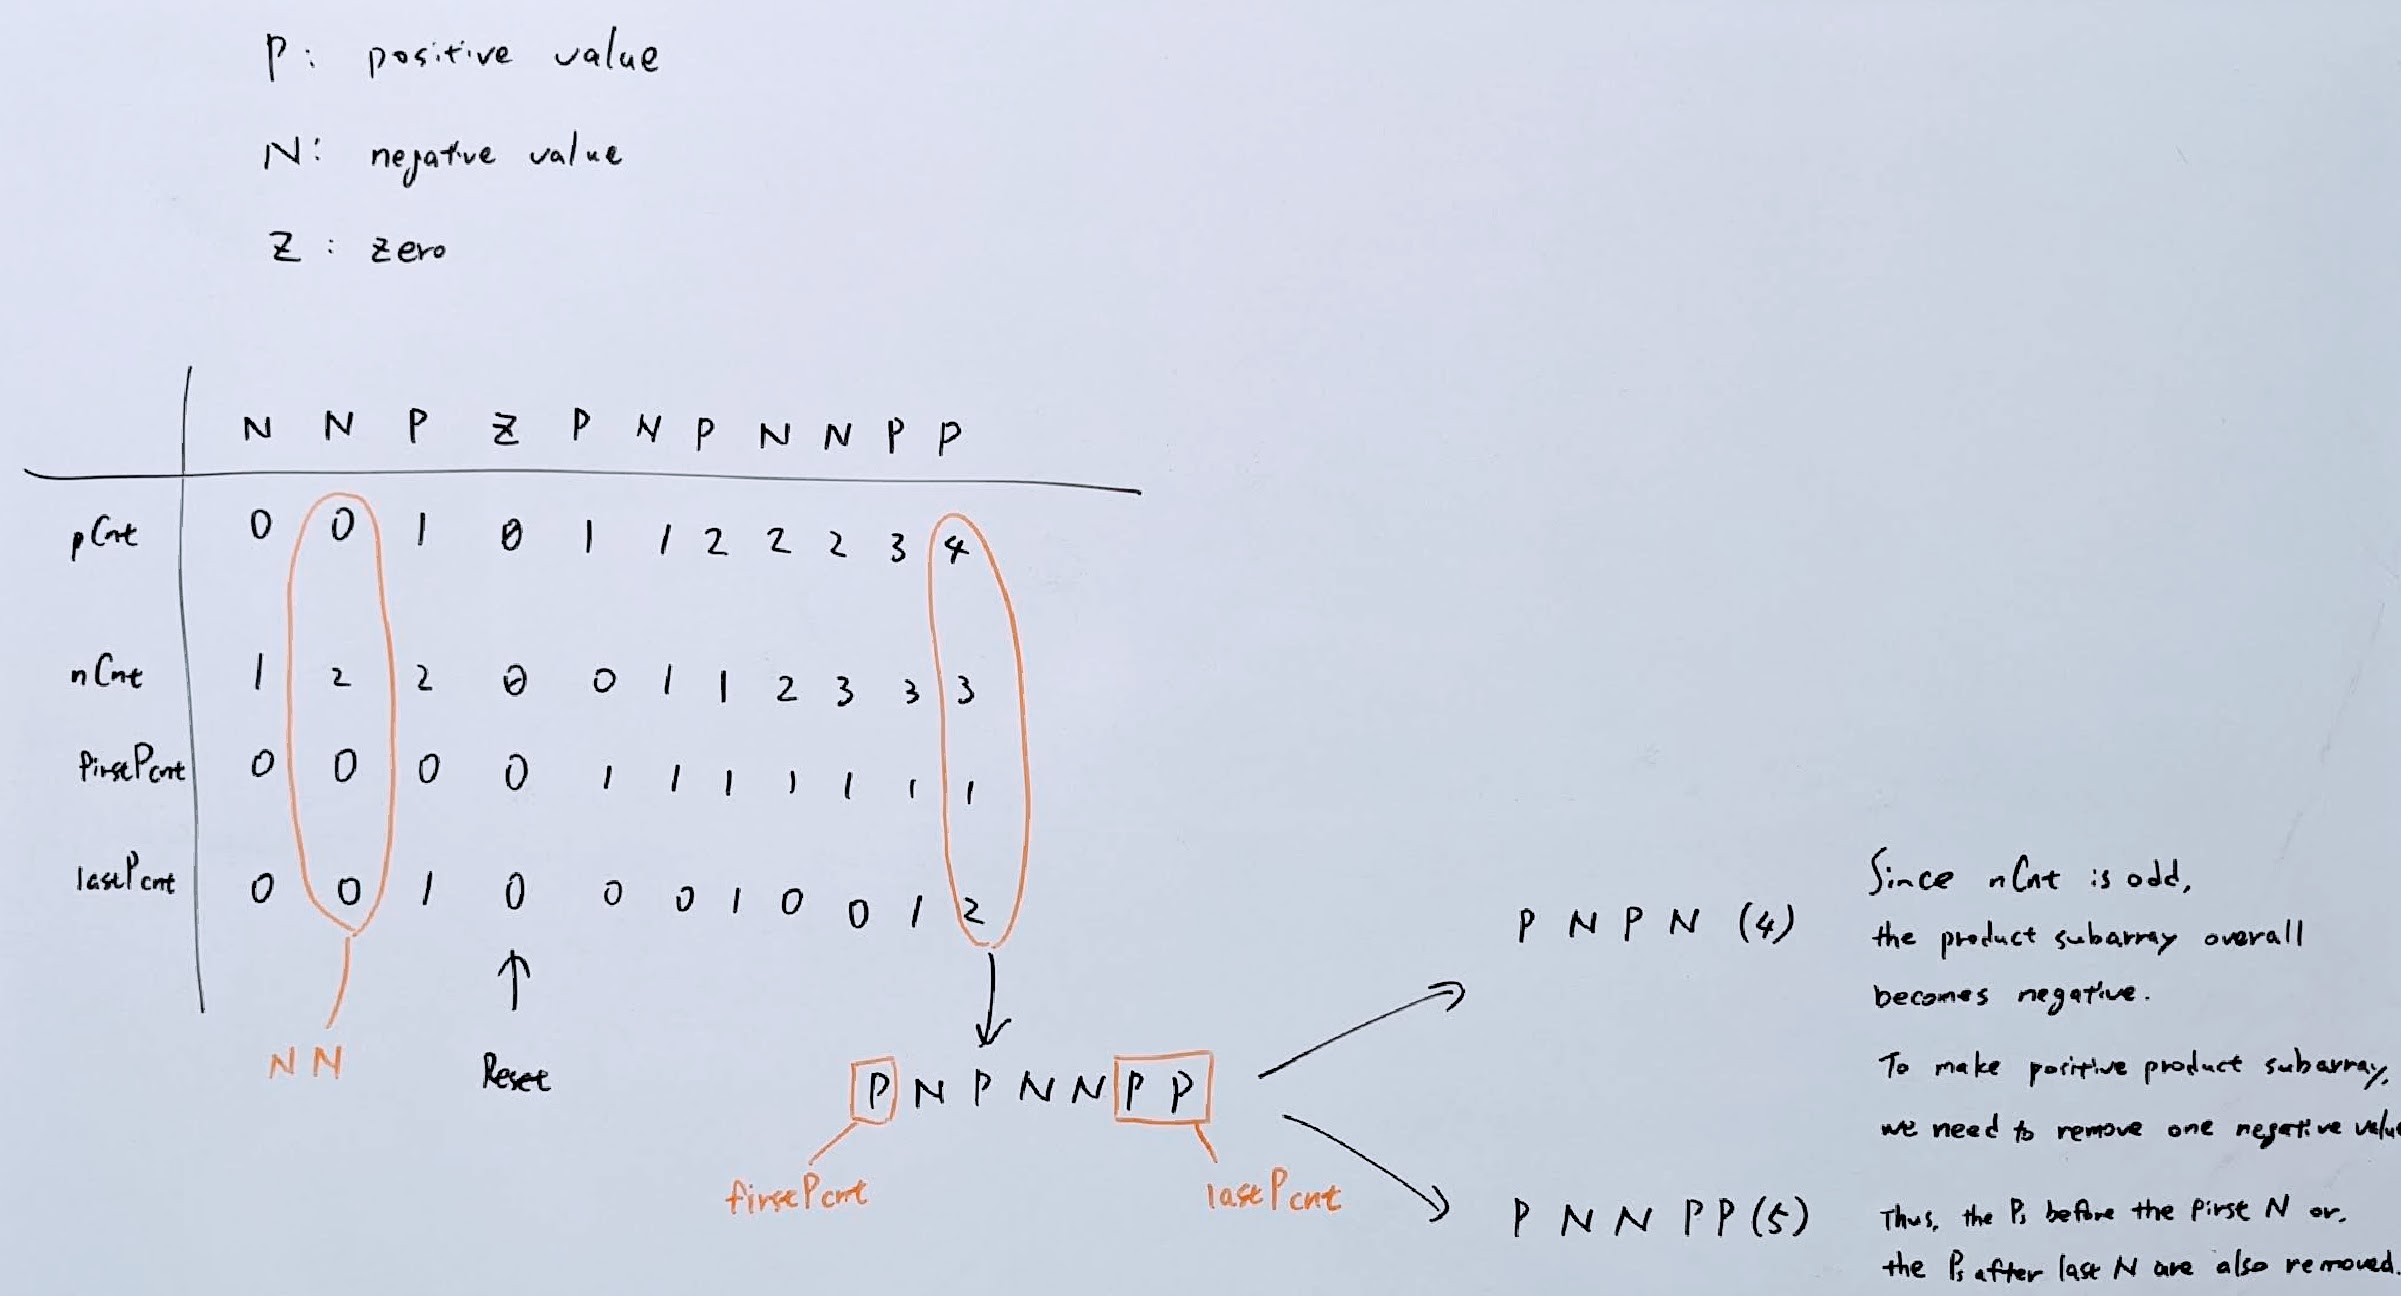 P: positive value
N: negative value
Z: zero
N N P Z P N P N N P P
pCnt 0 0 1 0 1 1 2 2 2 3 4
nCnt 1 2 2 0 0 1 1 2 3 3 3
firstPcnt 0 0 0 0 1 1 1 1 1 1 1
lastPcnt 0 0 1 0 0 0 1 0 0 1 2
NN
Reset
P N P N N P P
firstPcnt
lastPcnt
P N P N (4)
P N N P P (5)
Since nCnt is odd,
the product subarray overall
becomes negative.
To make positive product subarray,
we need to remove one negative value
Thus, the Ps before the first N or,
the Ps after last N are also removed.